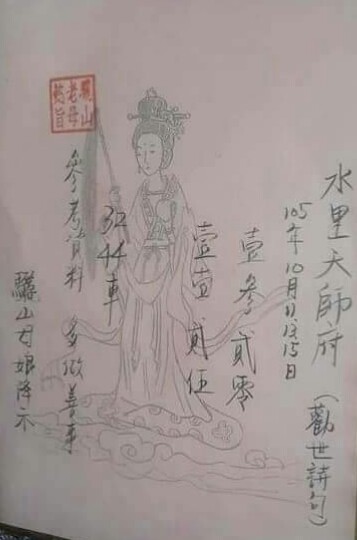 水里天師府
(勸世詩句)
105年10月11.13.15日
壹參貳零
壹壹貳伍
32
44車
驪山
老母
懿旨
參考資料 多做善事
驪山母娘降示